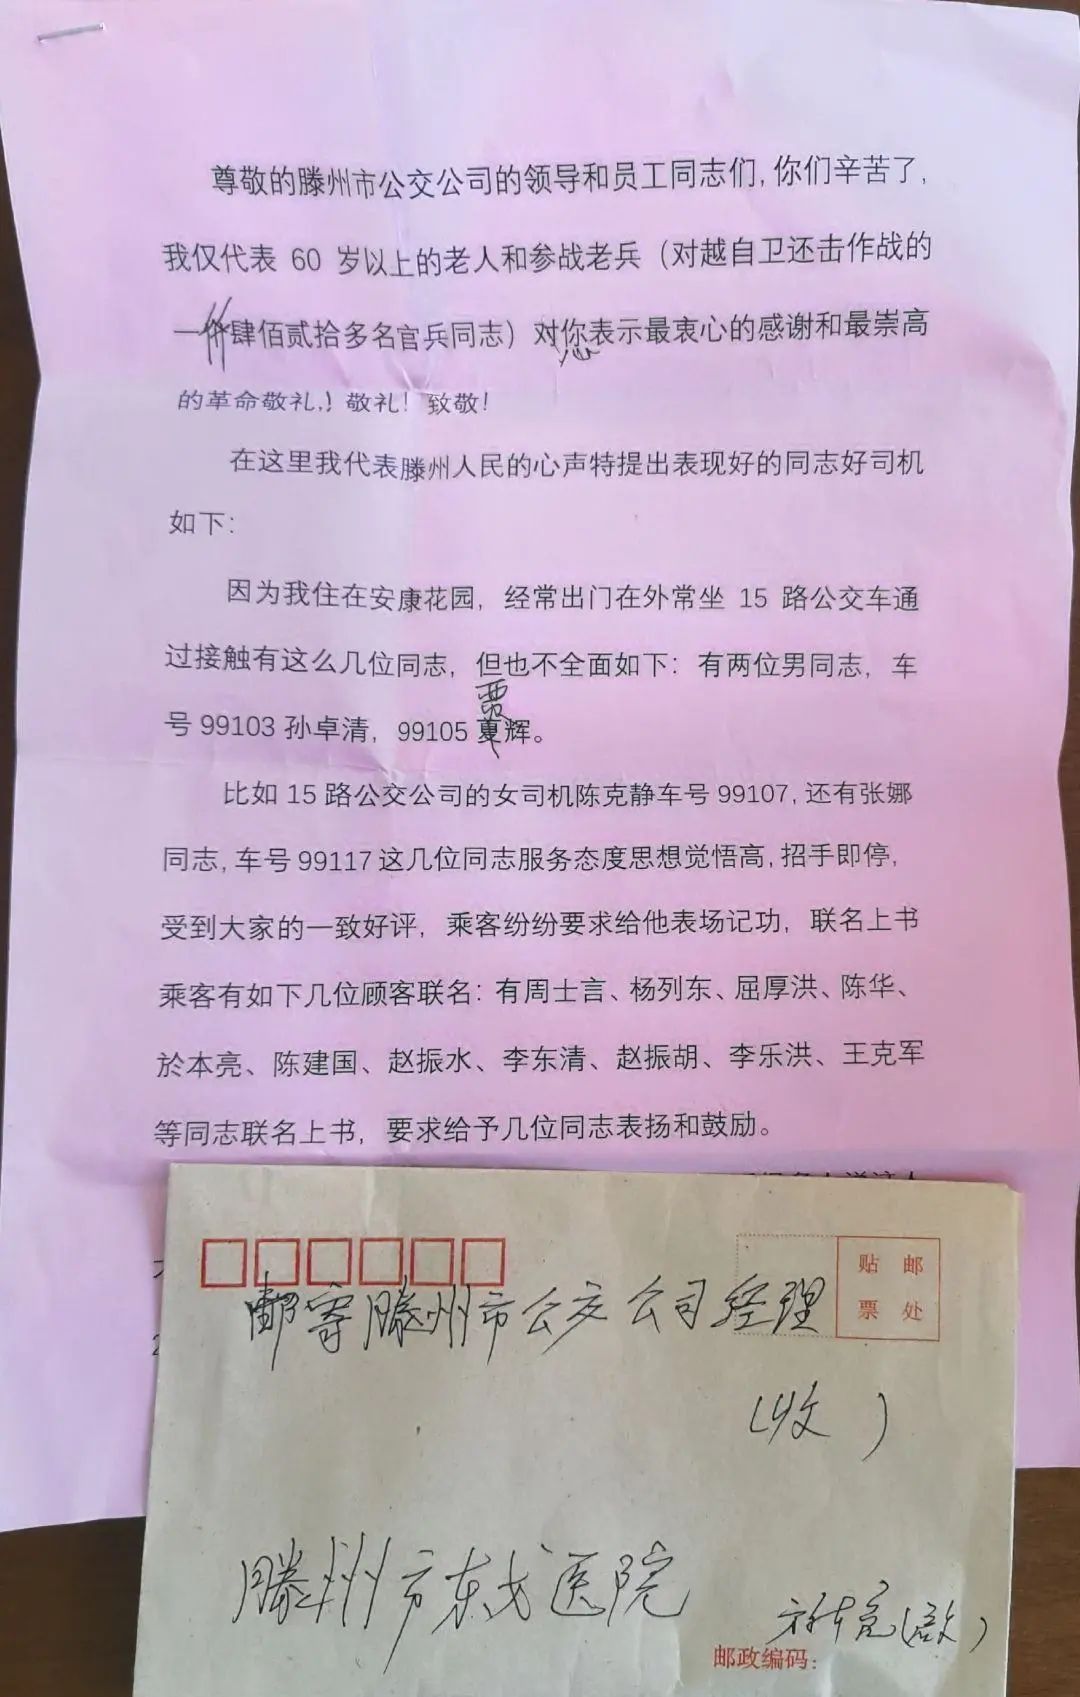 尊敬的滕州市公交公司的领导和员工同志们,你们辛苦了,
我仅代表 60 岁以上的老人和参战老兵（对越自卫还击作战的
一肆佰贰拾多名官兵同志）对您表示最衷心的感谢和最崇高
的革命敬礼,！敬礼！致敬！
在这里我代表滕州人民的心声特提出表现好的同志好司机
如下:
因为我住在安康花园，经常出门在外常坐 15 路公交车通
过接触有这么几位同志，但也不全面如下：有两位男同志，车
号 99103 孙卓清，99105 贾辉。
比如 15 路公交公司的女司机陈克静车号 99107, 还有张娜
同志, 车号 99117 这几位同志服务态度思想觉悟高, 招手即停,
受到大家的一致好评，乘客纷纷要求给他表场记功，联名上书
乘客有如下几位顾客联名：有周士言、杨列东、屈厚洪、陈华、
於本亮、陈建国、赵振水、李东清、赵振胡、李乐洪、王克军
等同志联名上书，要求给予几位同志表扬和鼓励。
贴 邮
票 处
邮寄滕州市公交公司经理
(收)
滕州市东戈医院
於本亮(启)
邮政编码：